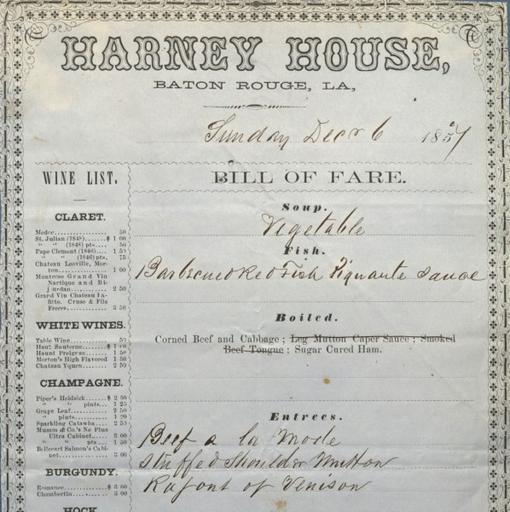 HARNEY HOUSE,
BATON ROUGE, LA,
Sunday Decr 6 1857
WINE LIST.
CLARET.
Medoc 50
St. Julian (1848) $1 00
" " (1848) pts 50
Pape Clement (1848) 1 50
" " (1846) pts. 75
Chateau Leoville, Mor-
ton 1 00
Montrose Grand Vin
2 50
Grand Vin Chateau La-
fitte. Cruse & Fils
Freres 3 50
WHITE WINES.
Table Wine 50
Haut Sauterne $1 00
Haunt Preignac 1 50
Morton's High Flavored 1 50
Chateau Yquen 2 50
CHAMPAGNE.
Piper's Heidsick $2 50
" " pints 1 25
Grape Leaf 2 50
" " pints 1 50
Sparkling Catawba 2 50
Mumm & Co.'s Ne Plus
Ultra Cabinet 3 00
" " pts 1 50
Billecart Salmon's Cabi-
net 3 00
BURGUNDY.
Romance $3 00
Chambertin 3 00
HOCK
BILL OF FARE.
Soup.
Vegetable
Fish.
Barbecued Red Fish Piquante Sauce
Boiled.
Corned Beef and Cabbage; Leg Mutton Caper Sauce; Smoked
Beef Tongue; Sugar Cured Ham.
Entrees.
Beef a la Mode
Stuffed Shoulder Mutton
Ragout of Venison